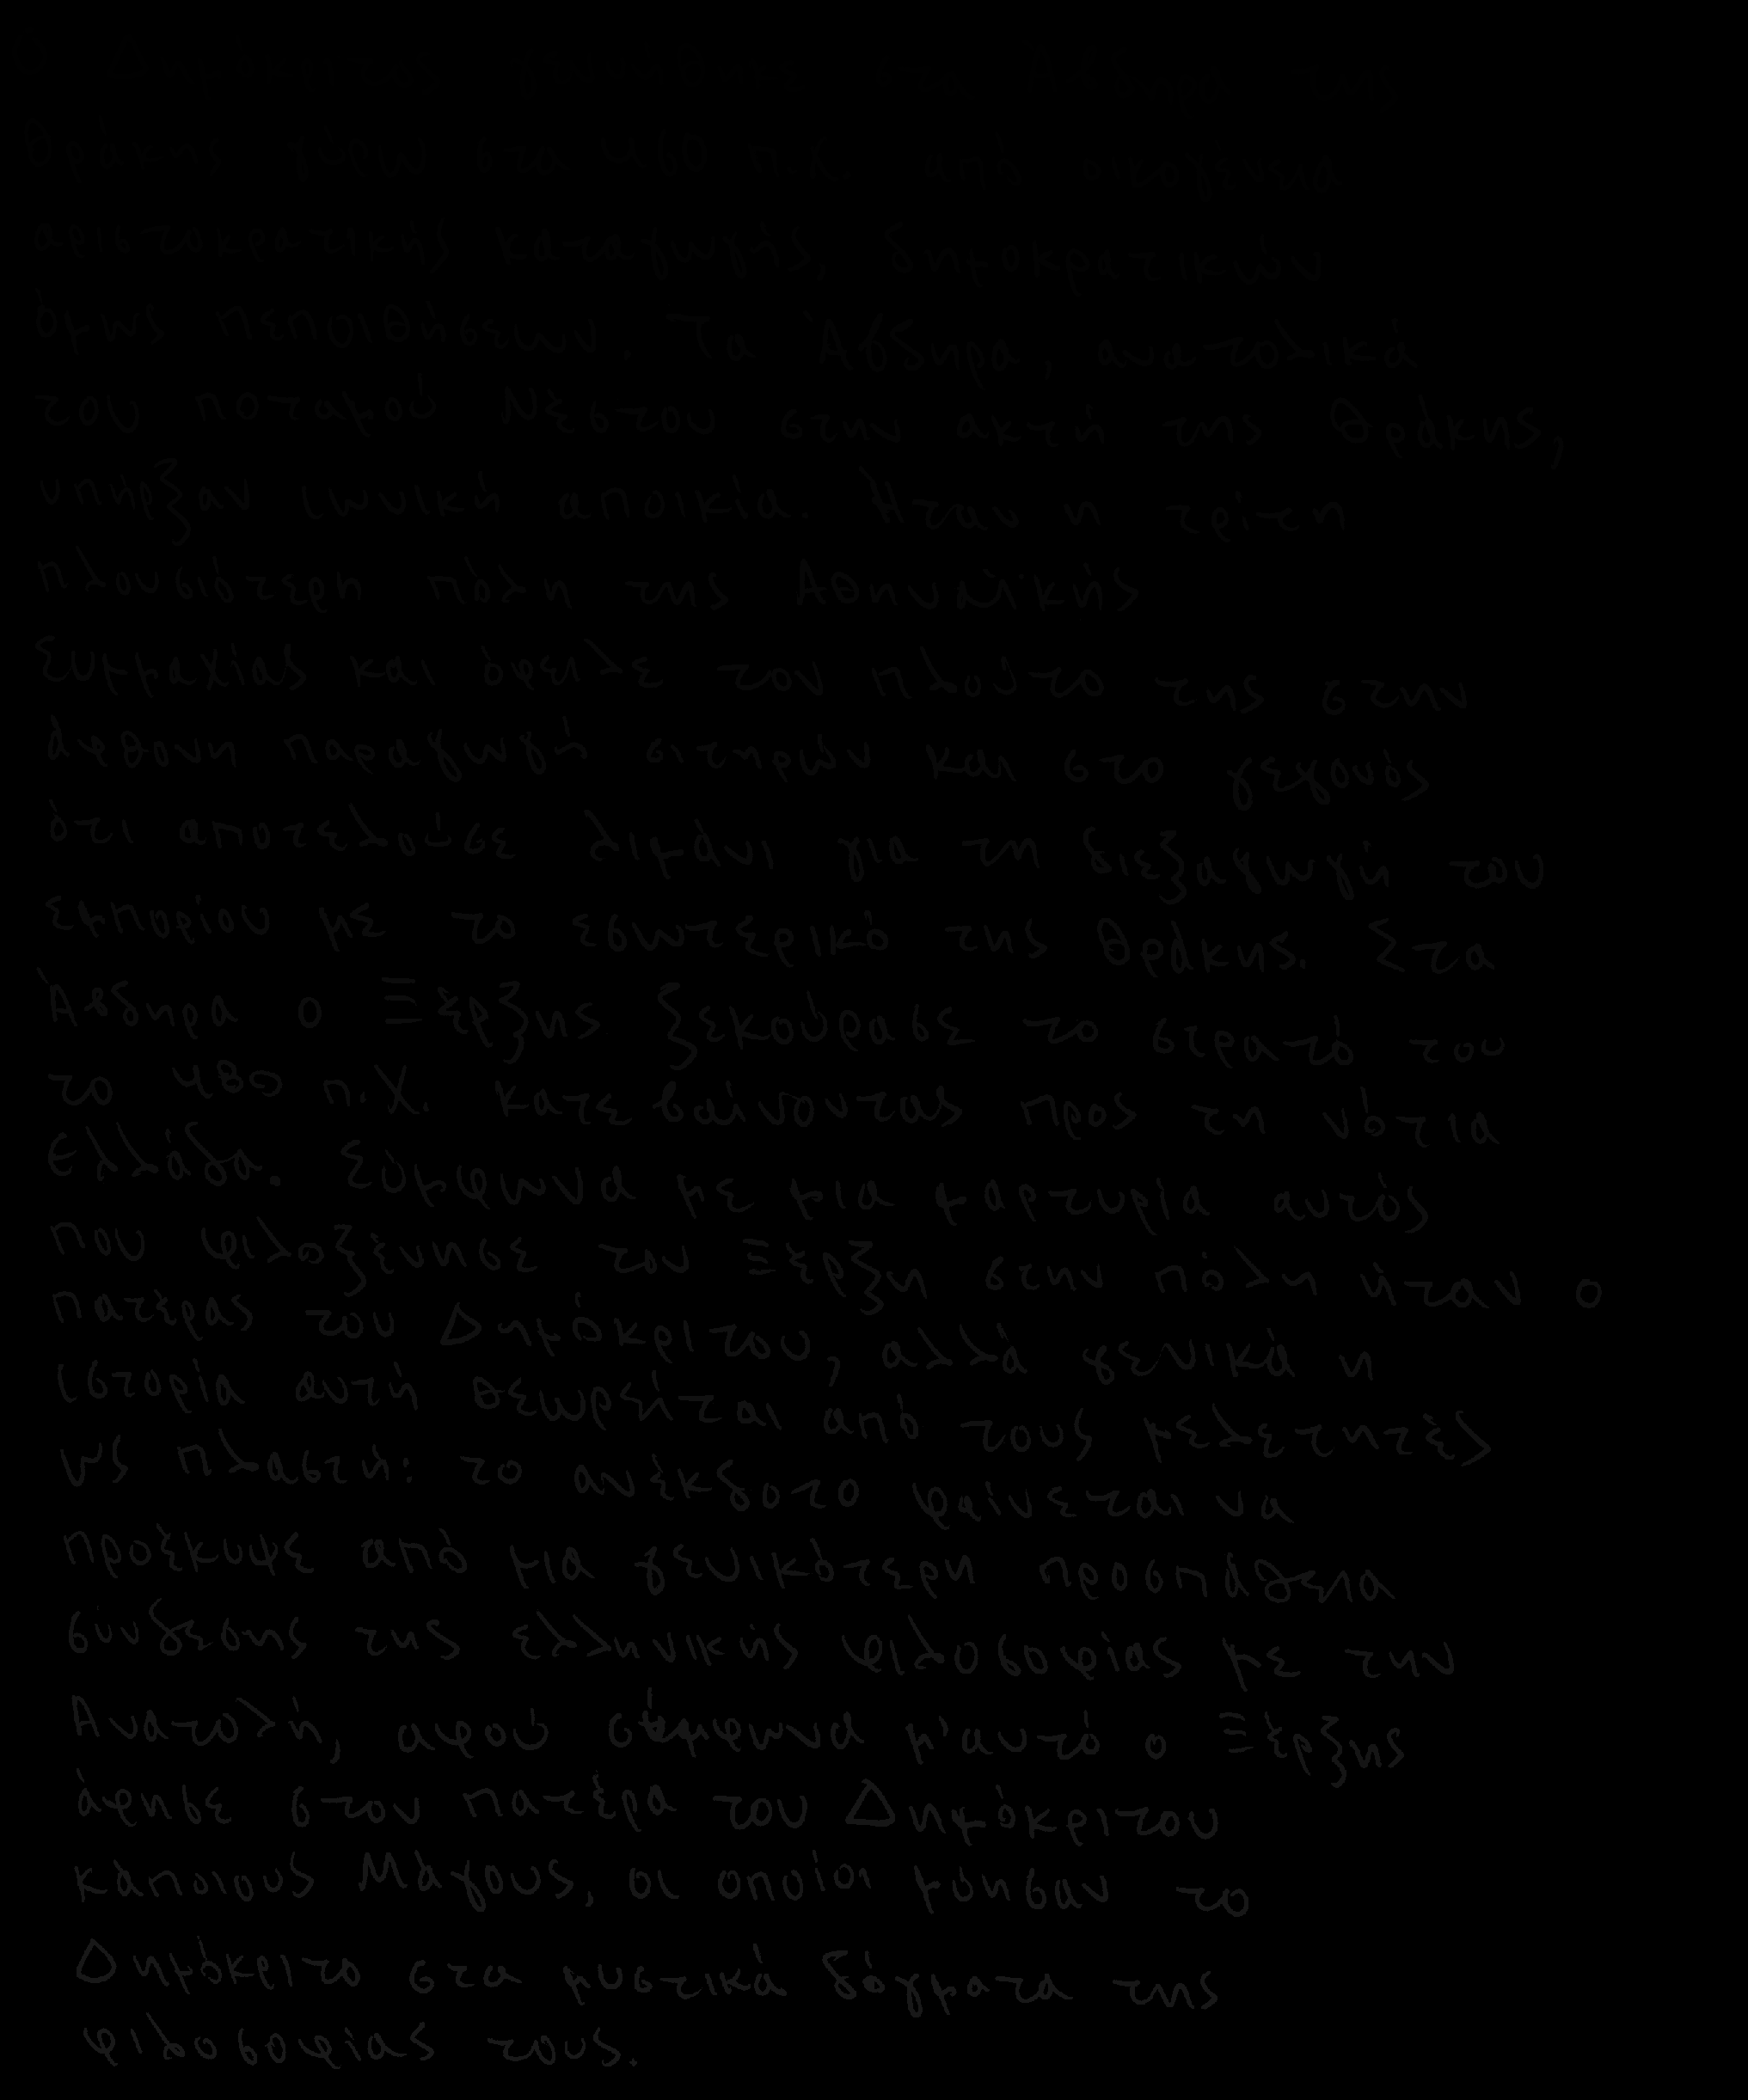 Ο Δημόκριτος γεννήθηκε στα Άβδηρα της
Θράκης γύρω στα 460 π.Χ. από οικογένεια
αριστοκρατικής καταγωγής, δημοκρατικών
όμως πεποιθήσεων. Τα Άβδηρα, ανατολικά
του ποταμού Νέστου στην ακτή της Θράκης,
υπήρξαν ιωνική αποικία. Ήταν η τρίτη
πλουσιότερη πόλη της Αθηναϊκής
Συμμαχίας και όφειλε τον πλούτο της στην
άφθονη παραγωγή σιτηρών και στο γεγονός
ότι αποτελούσε λιμάνι για τη διεξαγωγή του
εμπορίου με το εσωτερικό της Θράκης. Στα
Άβδηρα ο Ξέρξης ξεκούρασε το στρατό του
το 480 π.Χ. κατεβαίνοντας προς τη νότια
Ελλάδα. Σύμφωνα με μια μαρτυρία αυτός
που φιλοξένησε τον Ξέρξη στην πόλη ήταν ο
πατέρας του Δημόκριτου, αλλά γενικά η
ιστορία αυτή θεωρείται από τους μελετητές
ως πλαστή: το ανέκδοτο φαίνεται να
προέκυψε από μια γενικότερη προσπάθεια
σύνδεσης της ελληνικής φιλοσοφίας με την
Ανατολή, αφού σύμφωνα μ'αυτό ο Ξέρξης
άφησε στον πατέρα του Δημόκριτου
κάποιους Μάγους, οι οποίοι μύησαν το
Δημόκριτο στα μυστικά δόγματα της
φιλοσοφίας τους.